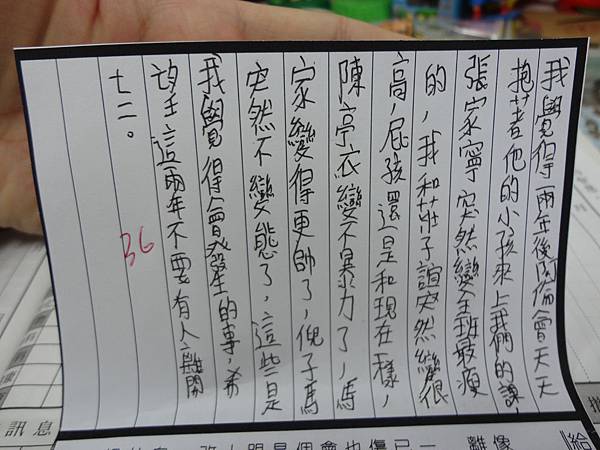 我覺得兩年後閃倫會天天
抱著他的小孩來上我們的課
張家寧突然變全班最瘦
的，我和莊子誼突然變很
高，屁孩還是和現在一樣，
陳亭衣變不暴力了，馬
家變得更帥了，倪子馬
突然不變態了，這些是
我覺得會發生的事，希
望這兩年不要有人離開
七二。
36
訊息